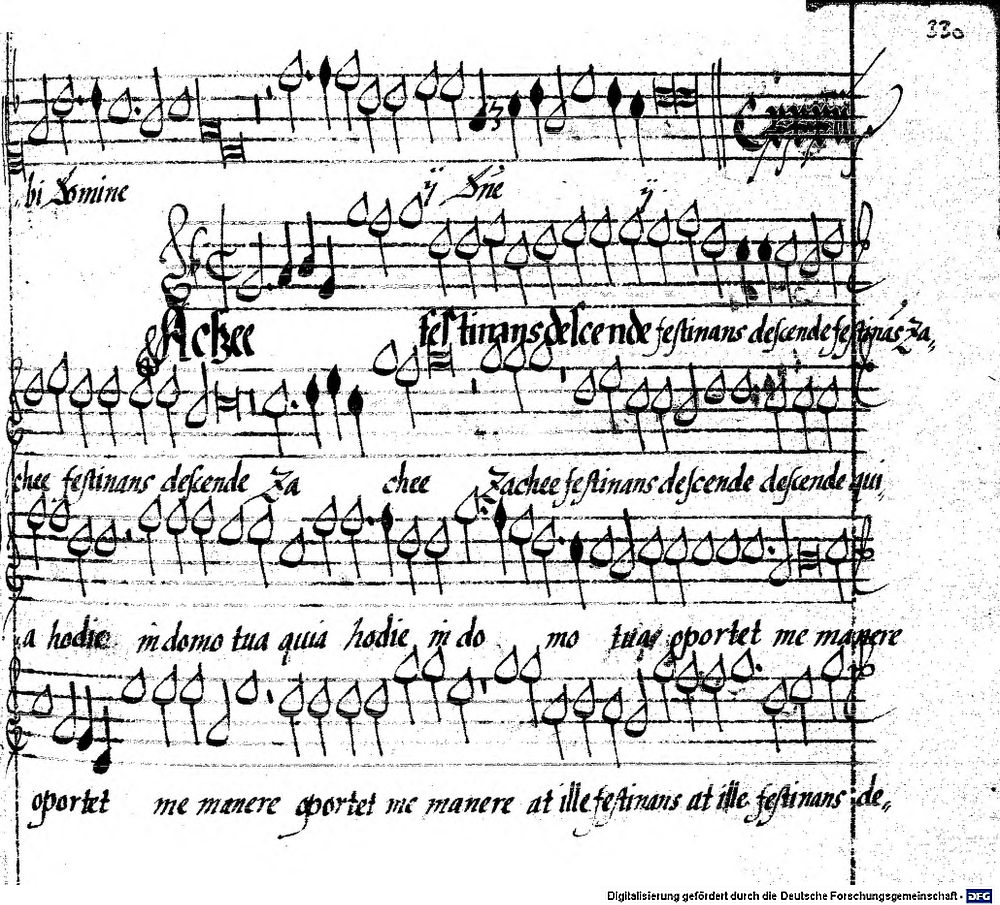 330
bi Domine ij Dne ij
Zachee festinans descende festinans descende festinãs Za„
chee festinans descende Za chee Zachee festinans descende descende qui„
a hodie in domo tua quia hodie in do mo tua oportet me manere
oportet me manere oportet me manere at ille festinans at ille festinans de„
Digitalisierung gefördert durch die Deutsche Forschungsgemeinschaft - DFG